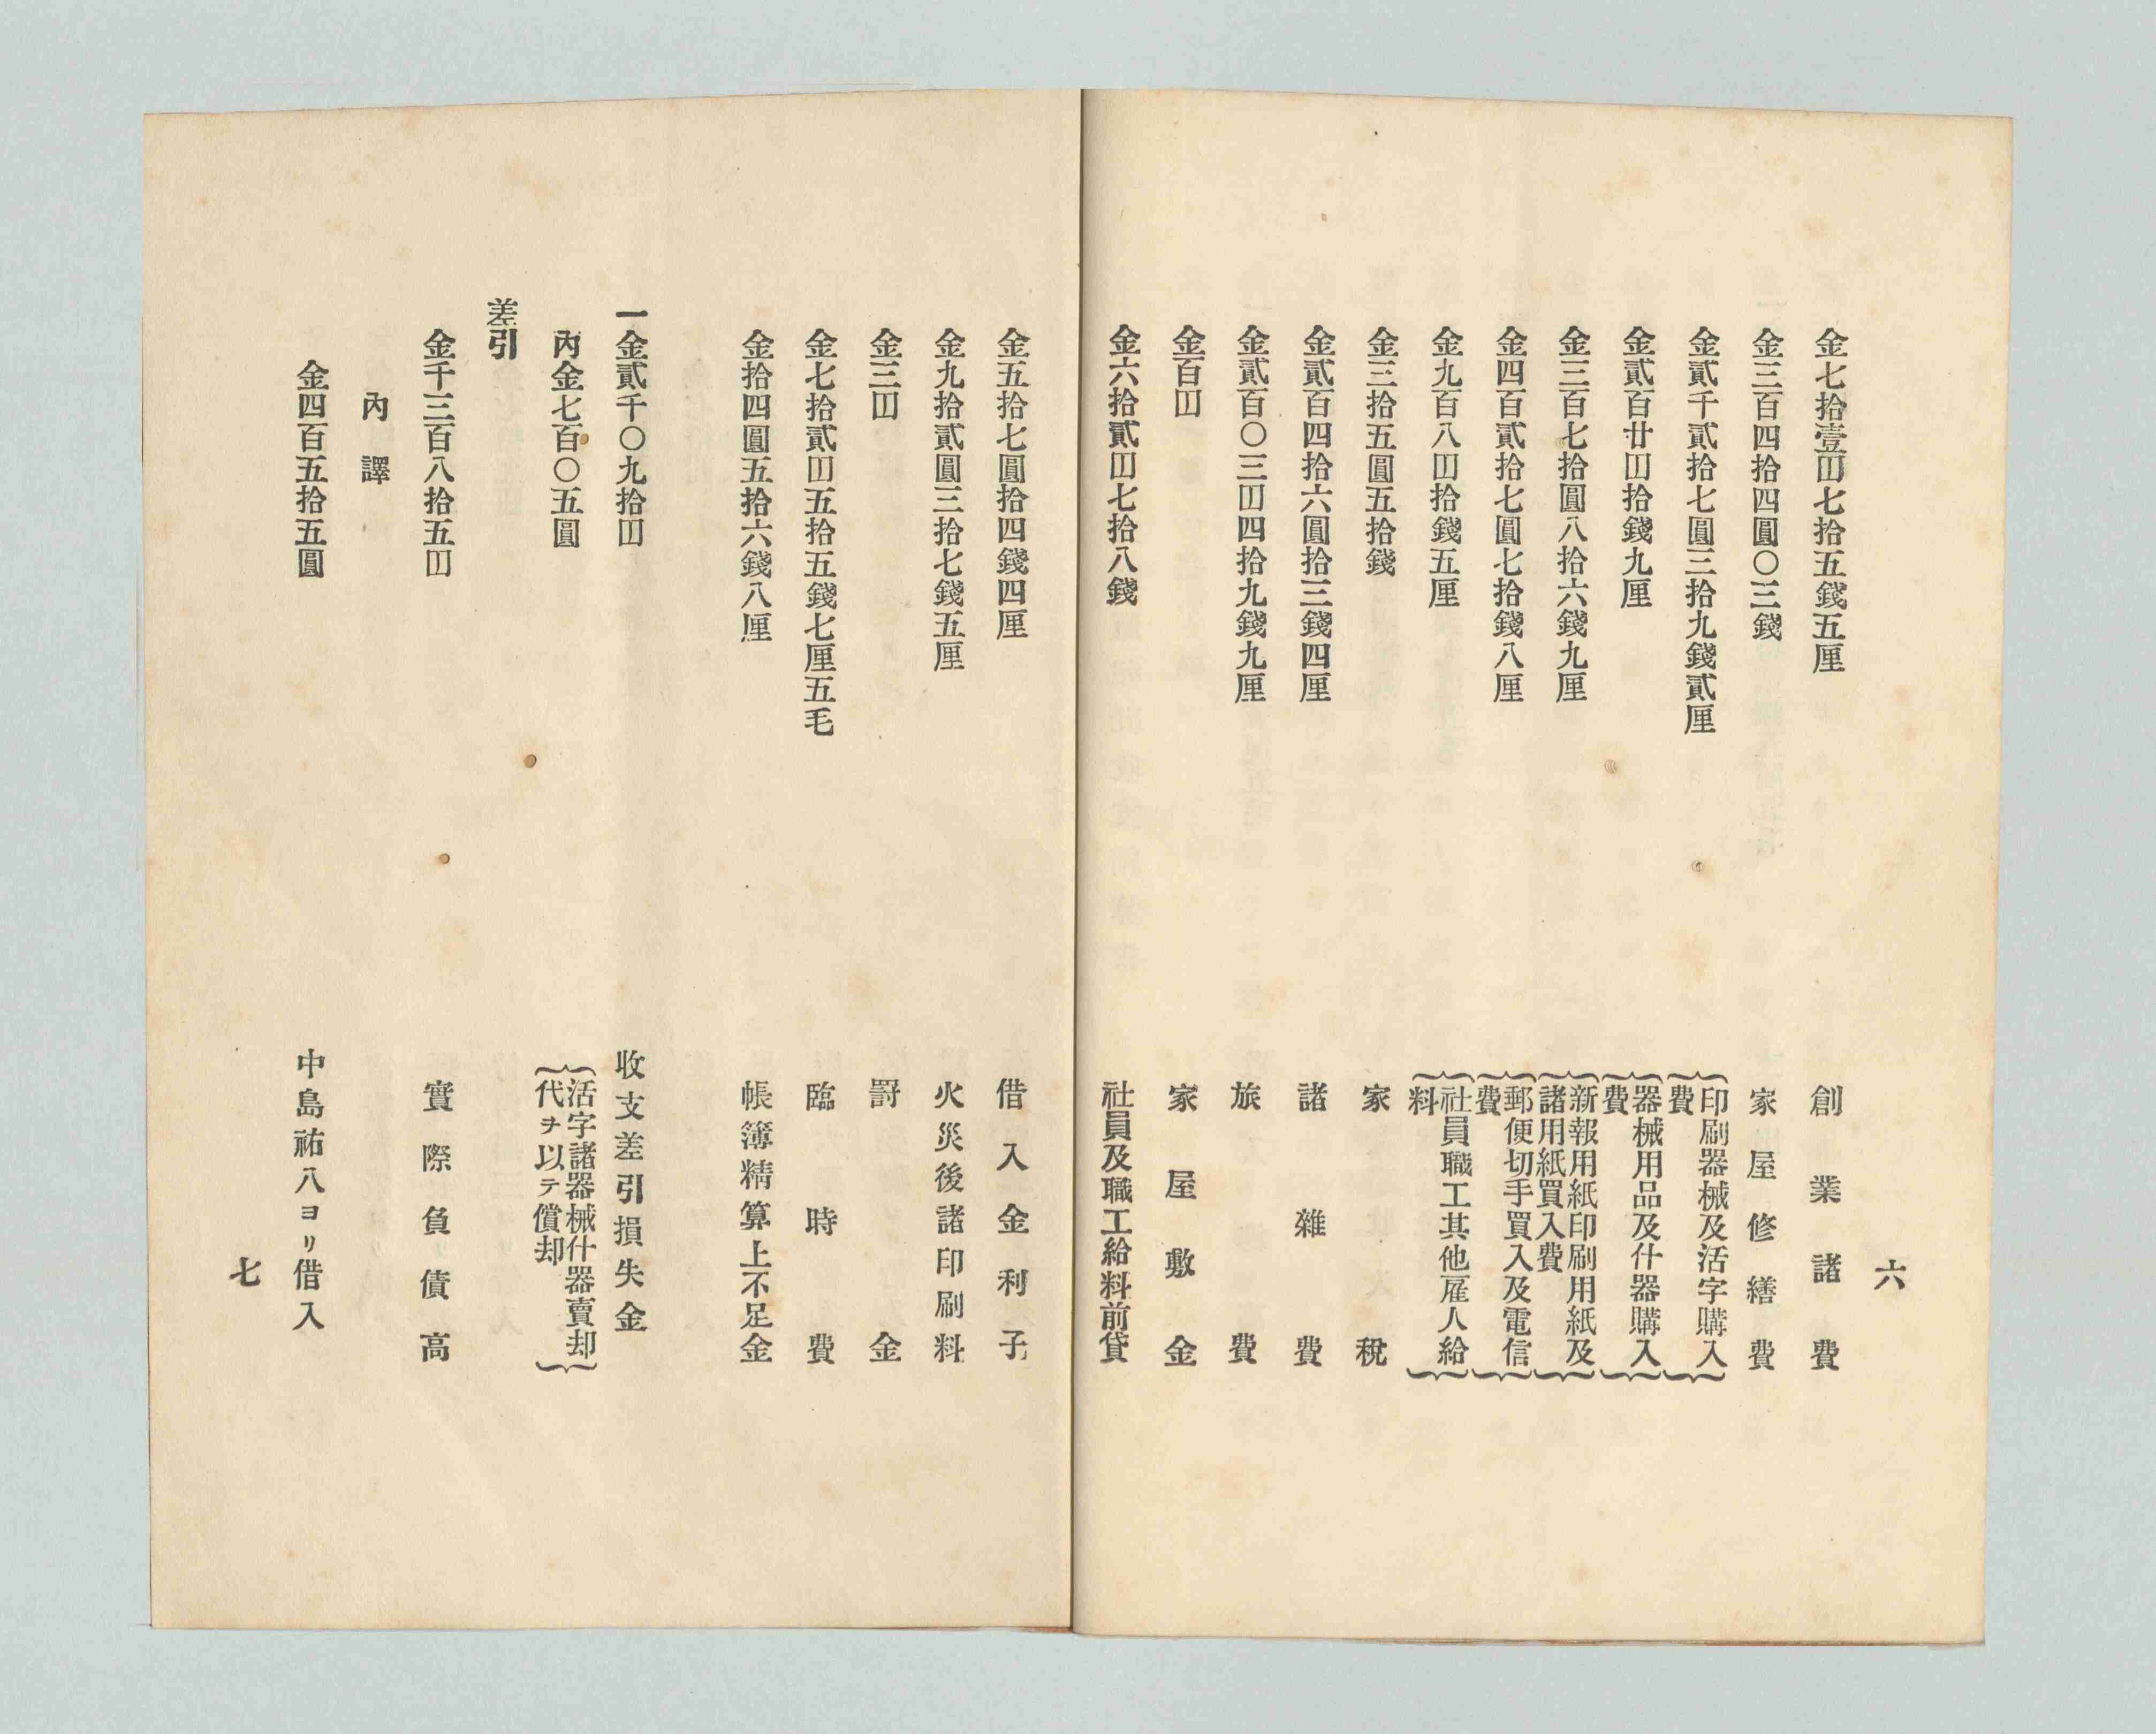 六
金七拾壹円七拾五錢五厘　創業諸費
金三百四拾四圓〇三錢　家屋修繕費
金貳千貳拾七圓三拾九錢貳厘　印刷器械及活字購入費
金貳百廿円拾錢九厘　器械用品及什器購入費
金三百七拾圓八拾六錢九厘　新報用紙印刷用紙及諸用紙買入費
金四百貳拾七圓七拾錢八厘　郵便切手買入及電信費
金九百八円拾錢五厘　社員職工其他雇人給料
金三拾五圓五拾錢　家稅
金貳百四拾六圓拾三錢四厘　諸雜費
金貳百〇三円四拾九錢九厘　旅費
金百円　家屋敷金
金六拾貳円七拾八錢　社員及職工給料前貸
金五拾七圓拾四錢四厘　借入金利子
金九拾貳圓三拾七錢五厘　火災後諸印刷料
金三円　罸金
金七拾貳円五拾五錢七厘五毛　臨時費
金拾四圓五拾六錢八厘　帳簿精算上不足金
一金貳千〇九拾円　收支差引損失金
內金七百〇五圓　活字諸器械什器賣却代ヲ以テ償却
差引
金千三百八拾五円　實際負債高
內譯
金四百五拾五圓　中島祐八ヨリ借入
七